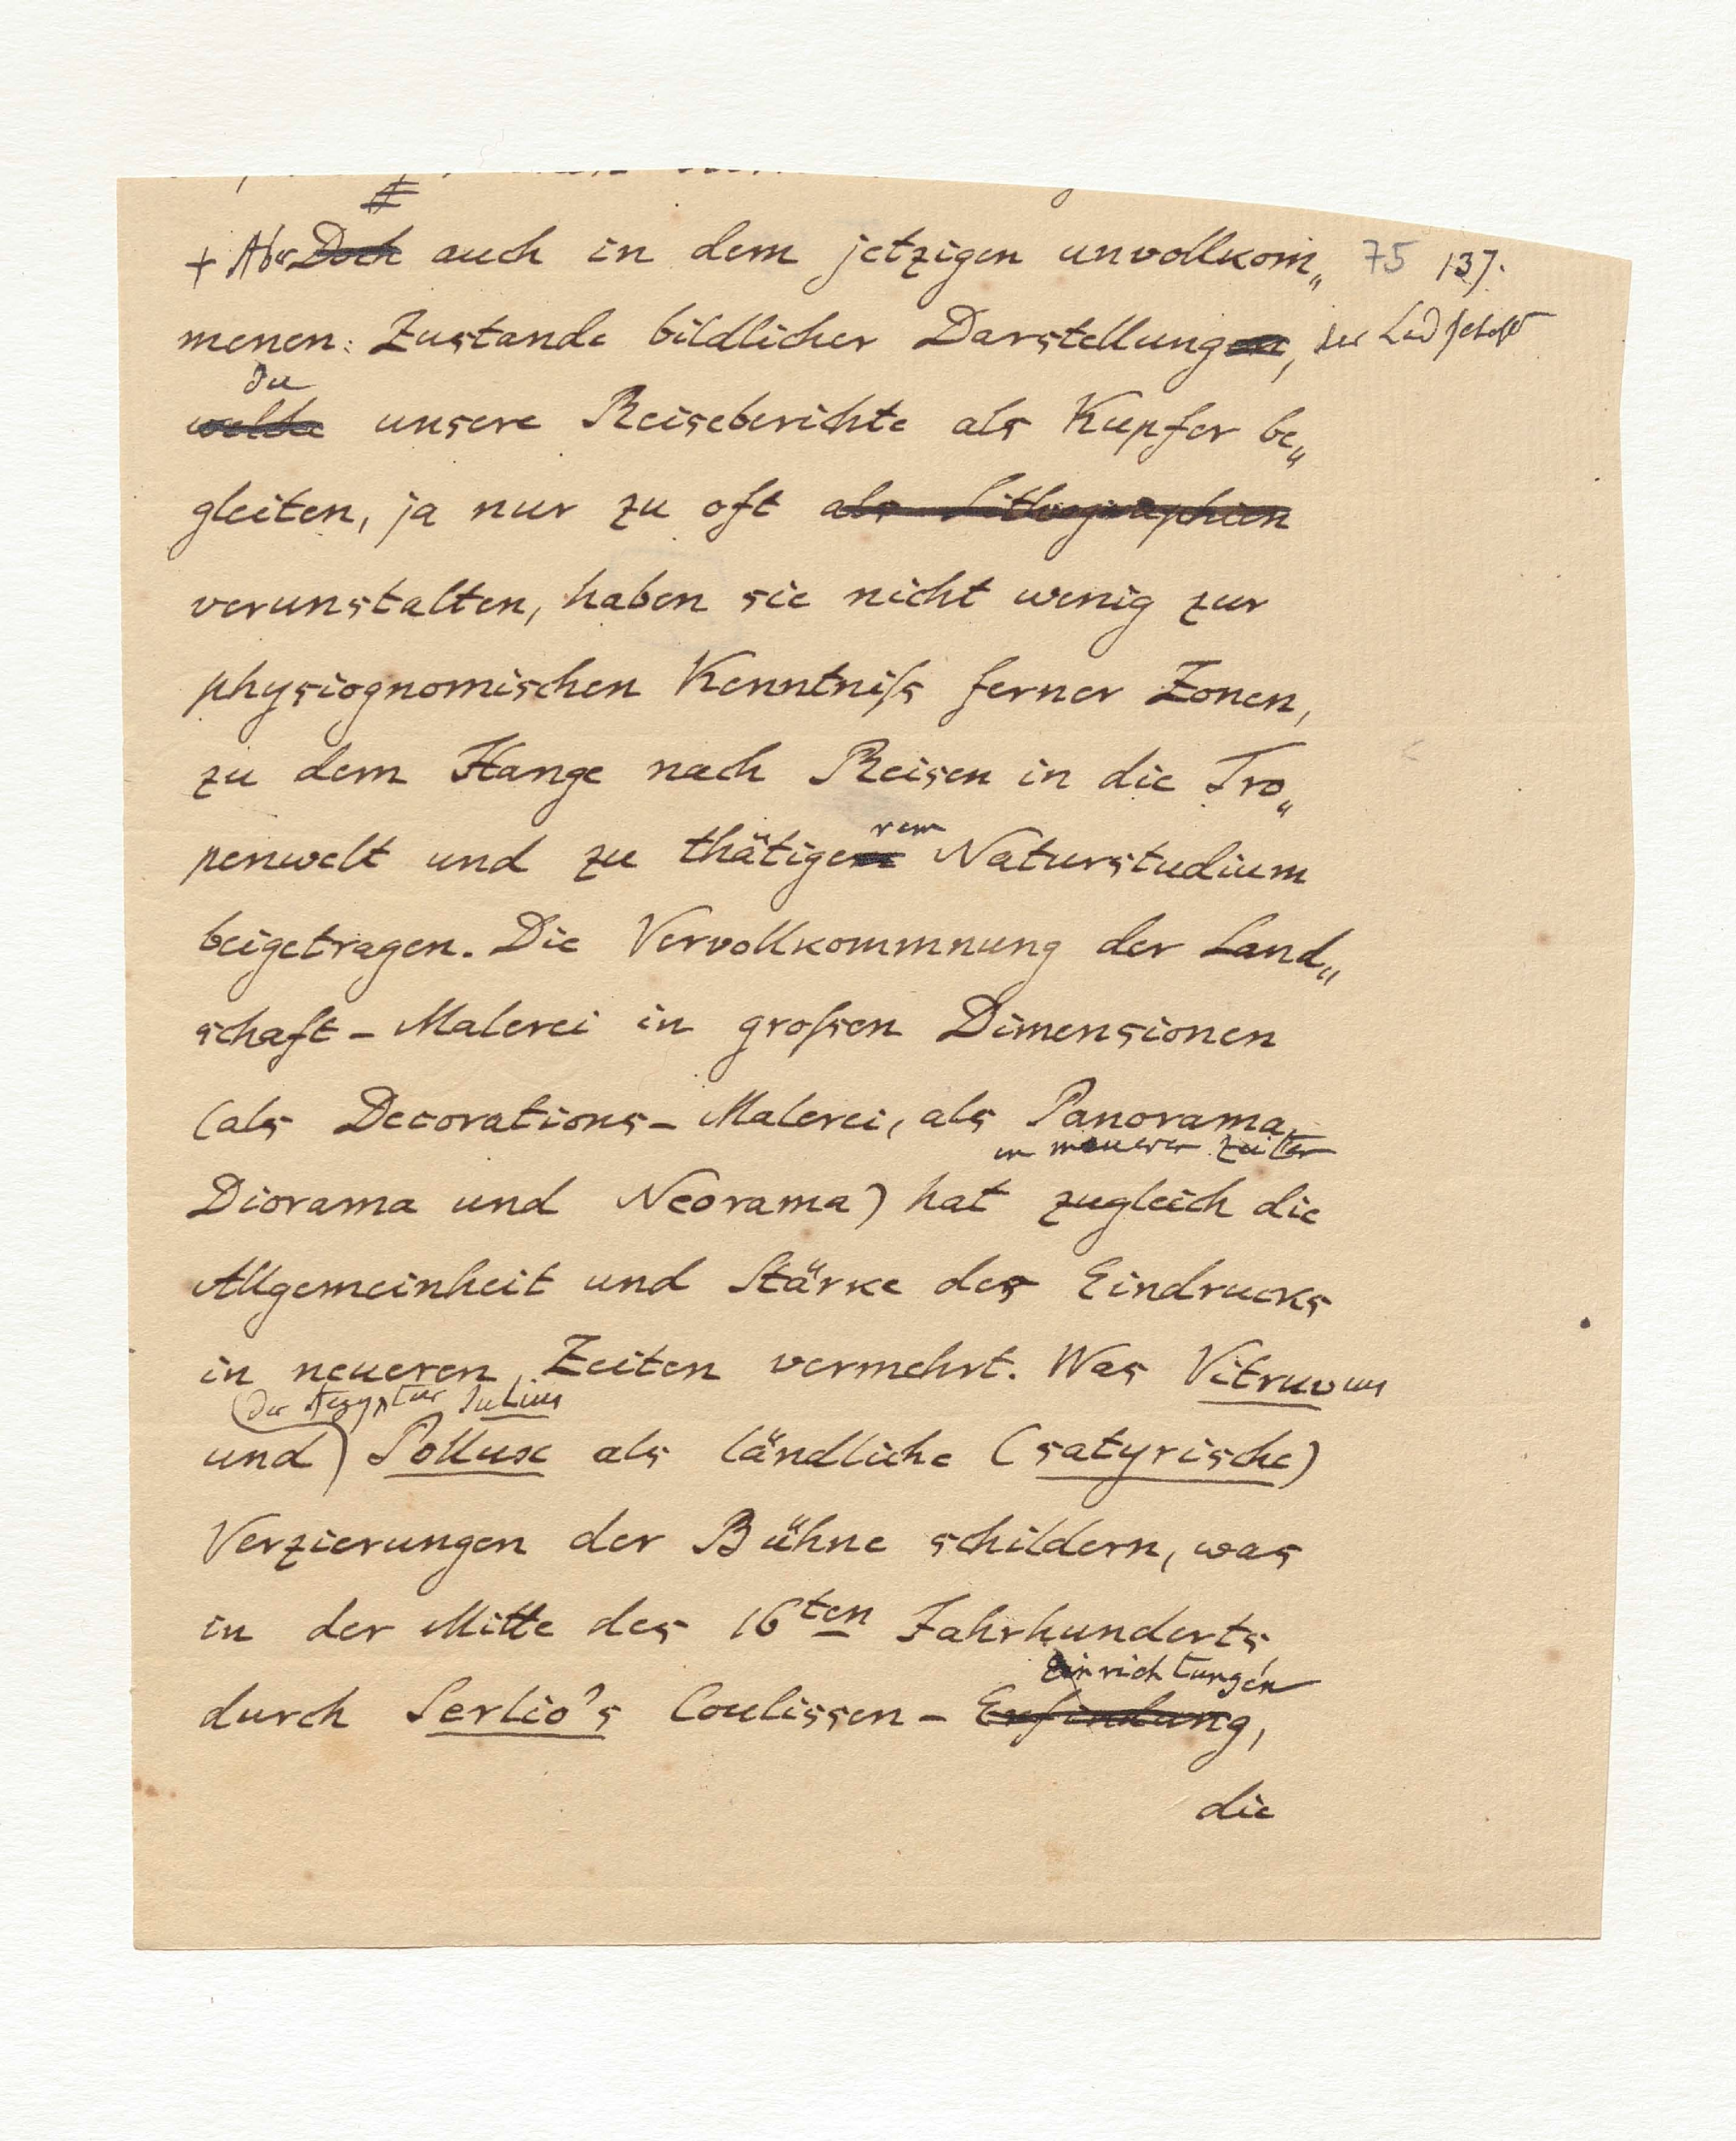 + Aber Doch auch in dem jetzigen unvollkom„ 75 137.
menen: Zustande bildlicher Darstellungen, der
die
welche unsere Reiseberichte als Kupfer be„
gleiten, ja nur zu oft als Lithographien
verunstalten, haben sie nicht wenig zur
physiognomischen Kenntniſs ferner Zonen,
zu dem Hange nach Reisen in die Tro„
rem
penwelt und zu thätigem Naturstudium
beigetragen. Die Vervollkommnung der Land„
schaft-Malerei in groſsen Dimensionen
(als Decorations-Malerei, als Panorama,
in neuerer Zeiten
Diorama und Neorama) hat zugleich die
Allgemeinheit und Stärke des Eindrucks
in neueren Zeiten vermehrt. Was Vitruvius
(der Aegypter Julius
und) Pollux als ländliche (satyrische)
Verzierungen der Bühne schildern, was
in der Mitte des 16ten Jahrhunderts
Einrichtungen
durch Serlio's Coulissen-Erfindung,
die